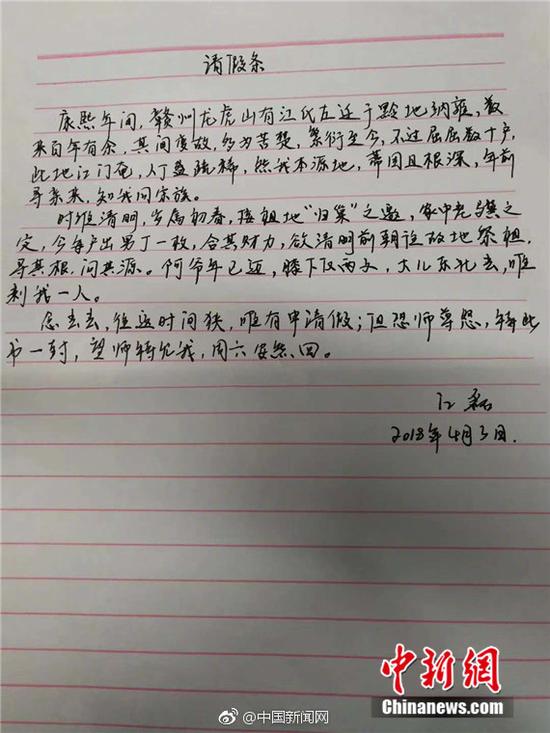 请假条
康熙年间，赣州龙虎山有江氏左迁于黔地纳雍，数
来百年有余，其间变故，多为苦楚，繁衍至今，不过屈屈数十户，
此地江门奄，人丁益疏稀，然我本源地，蒂固且根深，年前
寻亲来，知我同宗族。
时维清明，岁属初春，接祖地“归巢”之邀，家中老骥之
定，今每户出男丁一枚，合其财力，欲清明前朝往故地祭祖，
寻其根，问其源。阿爷年已迈，膝下仅两子，大儿东北去，唯
剩我一人。
念去去，往返时间狭，唯有申请假；但恐师尊怒，特此
书一封，望师特允我，周六安然回。
江磊
2018年4月3日.
中新网
Chinanews.com
@中国新闻网